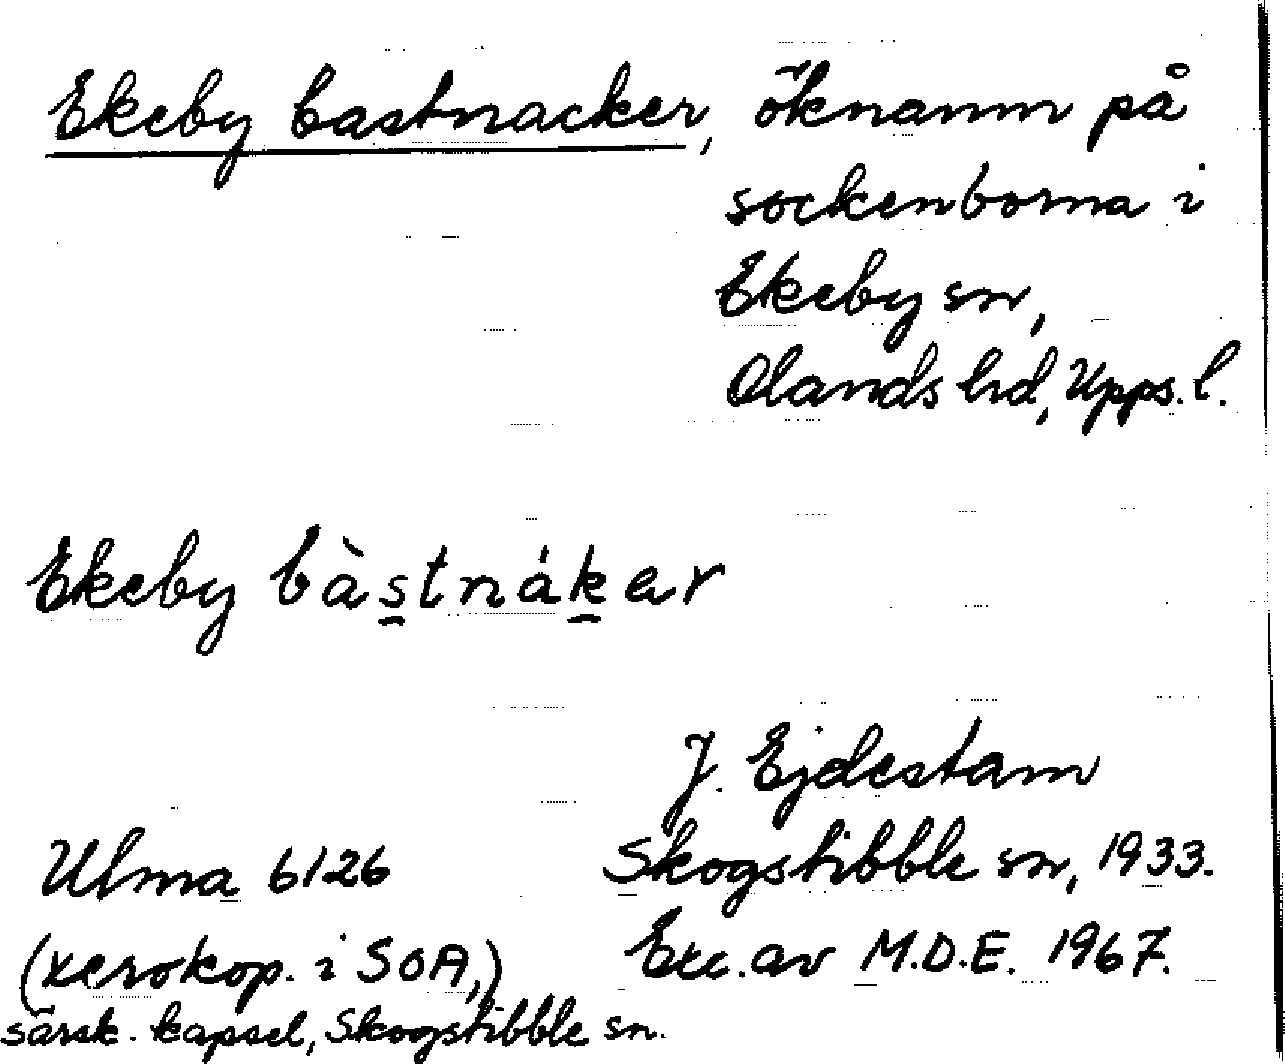 Ekeby bastnacker, öknamn på
sockenborna i
Ekeby sn,
Olands hd, Upps. l.
Ekeby bàs̲tnák̲ar
J. Ejdestam
Ulma 6126
Skogstibble sn, 1933.
(xerokop. i SOA,)
Exc. av M.D.E. 1967.
särsk. kapsel, Skogstibble sn.